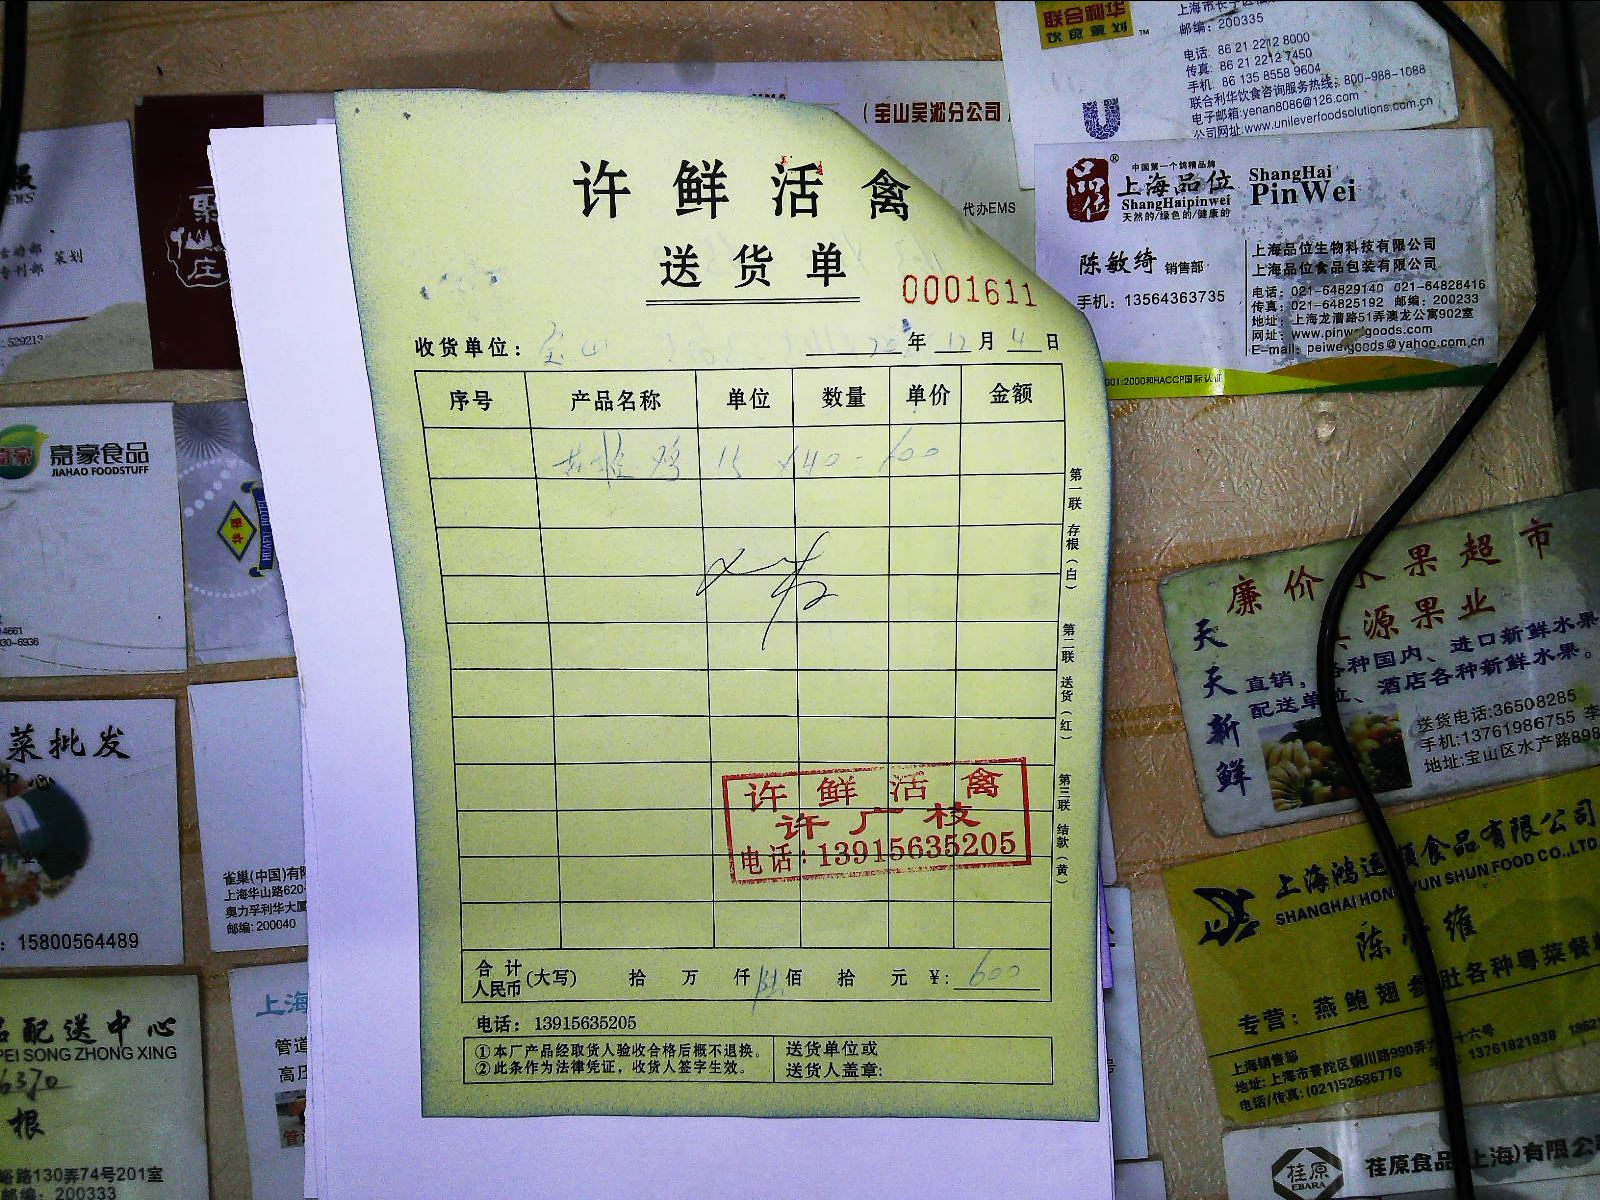 许鲜活禽
送货单
0001611
收货单位：宝山 年 12 月 4 日
序号 产品名称 单位 数量 单价 金额
鸡 15 ×40- 600
第一联 存根（白）
第二联 送货（红）
第三联 结款（黄）
许鲜活禽
许广枝
电话：13915635205
合计人民币 (大写) 拾 万 仟 陆 佰 拾 元 ¥: 600
电话：13915635205
①本厂产品经取货人验收合格后概不退换。
②此条作为法律凭证，收货人签字生效。
送货单位或
送货人盖章:
（宝山吴淞分公司
代办EMS
联合利华
饮食策划
邮编：200335
电话: 86 21 2212 8000
传真: 86 21 2212 7450
手机: 86 135 8558 9604
联合利华饮食咨询服务热线：800-988-1088
电子邮箱:yenan8086@126.com
公司网址:www.unileverfoodsolutions.com.cn
中国第一个鸽精品牌
上海品位
ShangHaipinwei
天然的/绿色的/健康的
ShangHai
PinWei
陈敏绮 销售部
手机：13564363735
上海品位生物科技有限公司
上海品位食品包装有限公司
电话：021-64829140 021-64828416
传真：021-64825192 邮编：200233
地址：上海龙漕路51弄澳龙公寓902室
网址：www.pinweigoods.com
E-mail：peiweigoods@yahoo.com.cn
001:2000和HACCP国际认证
廉价水果超市
源果业
天天新鲜
直销，各种国内、进口新鲜水果
配送单位、酒店各种新鲜水果。
送货电话:36508285
手机:13761986755 李
地址:宝山区水产路898
上海鸿运顺食品有限公司
SHANGHAI HONGYUN SHUN FOOD CO.,LTD
专营：燕鲍翅参肚各种粤菜餐
上海销售部
地址：上海市普陀区铜川路990弄
电话/传真：(021)52686776
13761821938
荏原
EBARA
荏原食品(上海)有限公
策划
聚仙庄
嘉豪食品
JIAHAO FOODSTUFF
HUAFU HOTEL
菜批发
：15800564489
雀巢(中国)有限
上海华山路620
奥力孚利华大厦
邮编：200040
品配送中心
PEI SONG ZHONG XING
根
路130弄74号201室
邮编：200333
上海
管道
高压